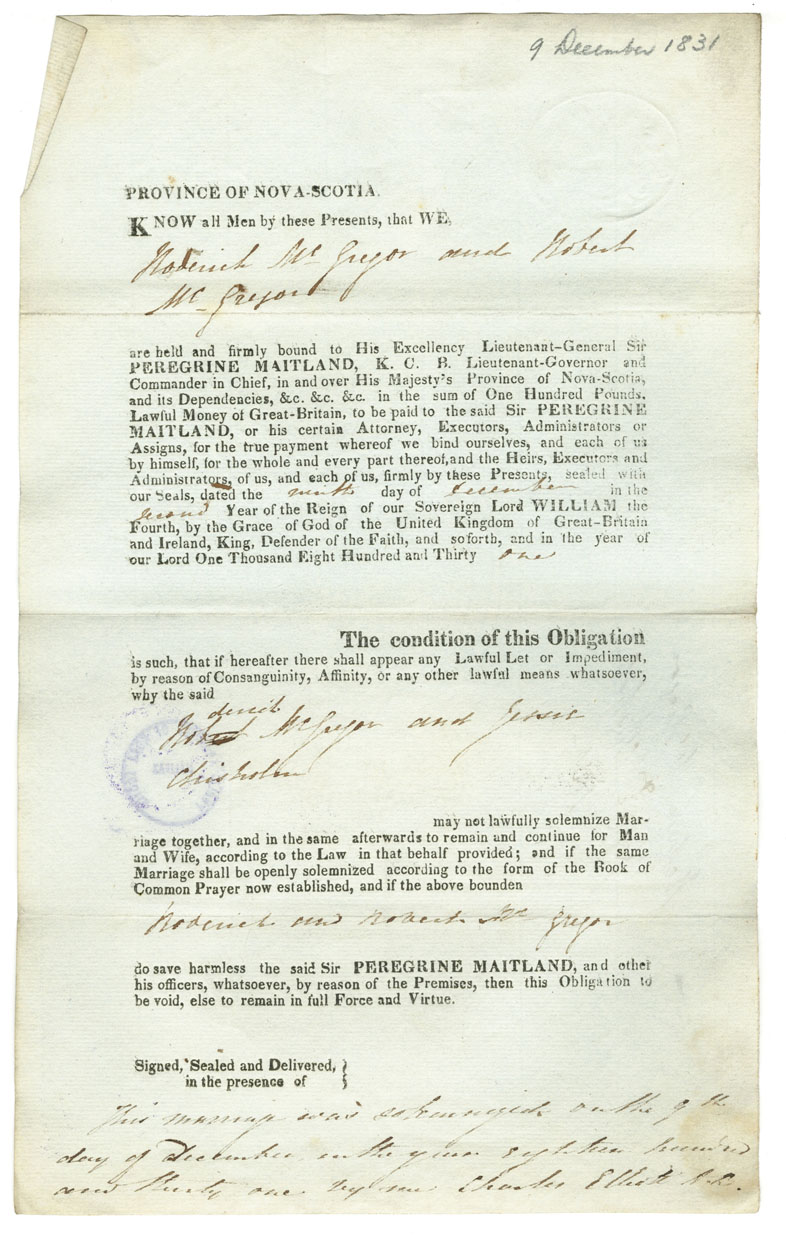 9 December 1831
PROVINCE OF NOVA-SCOTIA.
KNOW all Men by these Presents, that WE,
Roderick Mc Gregor and Robert
Mc Gregor
are held and firmly bound to His Excellency Lieutenant-General Sir
PEREGRINE MAITLAND, K. C. B. Lieutenant-Governor and
Commander in Chief, in and over His Majesty's Province of Nova-Scotia,
and its Dependencies, &c. &c. &c. in the sum of One Hundred Pounds,
Lawful Money of Great-Britain, to be paid to the said Sir PEREGRINE
MAITLAND, or his certain Attorney, Executors, Administrators or
Assigns, for the true payment whereof we bind ourselves, and each of us
by himself, for the whole and every part thereof, and the Heirs, Executors and
Administrators, of us, and each of us, firmly by these Presents, sealed with
our Seals, dated the ninth day of December in the
second Year of the Reign of our Sovereign Lord WILLIAM the
Fourth, by the Grace of God of the United Kingdom of Great-Britain
and Ireland, King, Defender of the Faith, and soforth, and in the year of
our Lord One Thousand Eight Hundred and Thirty one
The condition of this Obligation
is such, that if hereafter there shall appear any Lawful Let or Impediment,
by reason of Consanguinity, Affinity, or any other lawful means whatsoever,
why the said
derick
Robert McGregor and Jessie
Chisholm
may not lawfully solemnize Mar-
riage together, and in the same afterwards to remain and continue for Man
and Wife, according to the Law in that behalf provided; and if the same
Marriage shall be openly solemnized according to the form of the Book of
Common Prayer now established, and if the above bounden
Roderick and Robert Mc Gregor
do save harmless the said Sir PEREGRINE MAITLAND, and other
his officers, whatsoever, by reason of the Premises, then this Obligation to
be void, else to remain in full Force and Virtue.
Signed, Sealed and Delivered, }
in the presence of
This marriage was solemnized on the 9th
day of December in the year eighteen hundred
and thirty one by me Charles Elliott